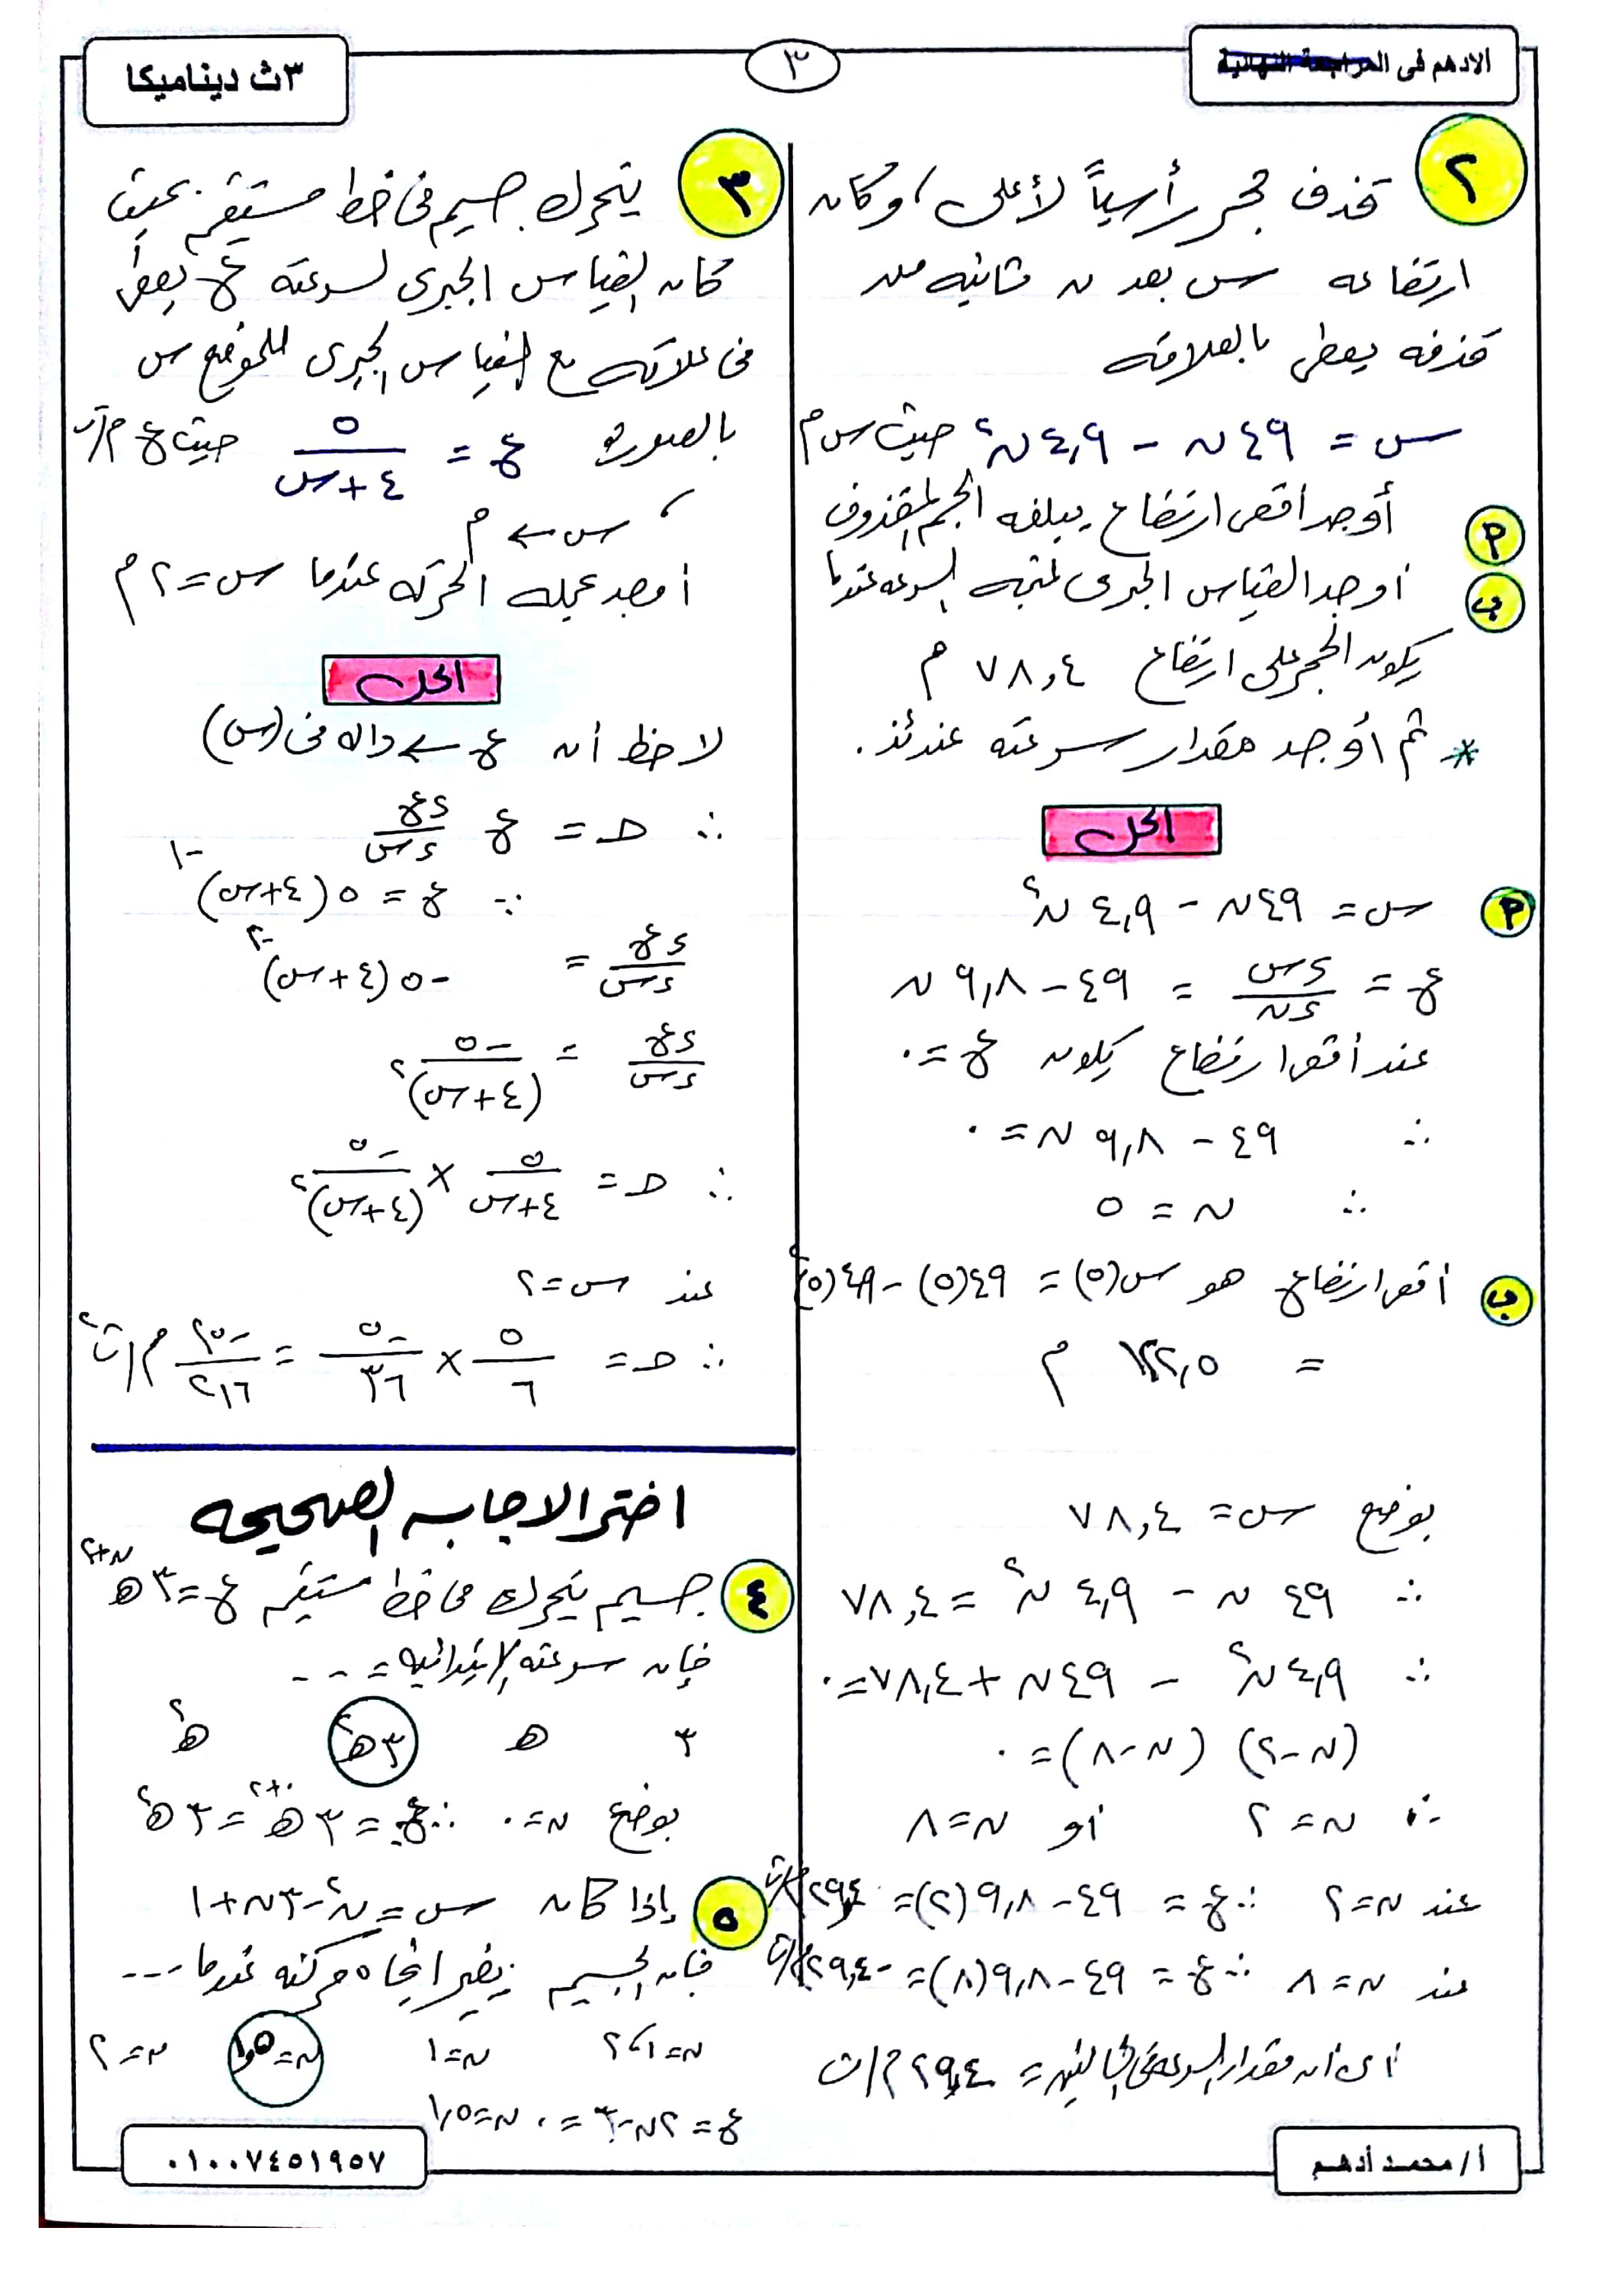 الادهم فى المراجعة النهائية
٣
٣ث ديناميكا
٢ قذف حجر رأسياً لأعلى ، وكان
ارتفاعه س بعد ن ثانيه من
قذفه يعطى بالعلاقه
س = ٤٩ن - ٤,٩ن٢ حيث س م
٩ أوجد أقصى ارتفاع يبلغه الجسم المقذوف
ب أوجد القياس الجبرى لمتجه السرعه عندما
يكون الحجر على ارتفاع ٧٨,٤ م
* ثم أوجد مقدار سرعته عندئذ .
الحل
٩ س = ٤٩ن - ٤,٩ن٢
ع = ءس/ءن = ٤٩ - ٩,٨ن
عند أقصى ارتفاع يكون ع = ٠
∴ ٤٩ - ٩,٨ن = ٠
∴ ن = ٥
ب أقصى ارتفاع هو س(٥) = ٤٩(٥) - ٤,٩(٥)٢
= ١٢٢,٥ م
بوضع س = ٧٨,٤
∴ ٤٩ن - ٤,٩ن٢ = ٧٨,٤
∴ ٤,٩ن٢ - ٤٩ن + ٧٨,٤ = ٠
(ن-٢) (ن-٨) = ٠
∴ ن = ٢ أو ن = ٨
عند ن = ٢ ∴ ع = ٤٩ - ٩,٨(٢) = ٢٩,٤ م/ث
عند ن = ٨ ∴ ع = ٤٩ - ٩,٨(٨) = -٢٩,٤ م/ث
أى أن مقدار السرعه فى الحالتين = ٢٩,٤ م/ث
٣ يتحرك جسيم فى خط مستقيم بحيث
كان القياس الجبرى لسرعته ع يعطى
فى علاقته مع القياس الجبرى للموضع س
بالصورة ع = ٥/(٤+س) حيث ع م/ث
، س ← م
أوجد عجله الحركه عندما س = ٢ م
الحل
لاحظ أن ع ← داله فى (س)
∴ حـ = ع ءع/ءس
∵ ع = ٥(٤+س)-١
ءع/ءس = -٥(٤+س)-٢
ءع/ءس = -٥/(٤+س)٢
∴ حـ = ٥/(٤+س) × -٥/(٤+س)٢
عند س = ٢
∴ حـ = ٥/٦ × -٥/٣٦ = -٢٥/٢١٦ م/ث٢
اختر الاجابه الصحيحه
٤ جسيم يتحرك فى خط مستقيم ع = ٣هـن+٢
فإن سرعته الابتدائيه = ---
٣ هـ ٣هـ٢ هـ٢
بوضع ن = ٠ ∴ ع. = ٣هـ٠+٢ = ٣هـ٢
٥ إذا كان س = ن٢ - ٣ن + ١
فإن الجسيم يغير اتجاه حركته عندما ---
ن = ١، ٢ ن = ١ ن = ١,٥ ن = ٢
ع = ٢ن - ٣ = ٠ ن = ١,٥
أ/ محمد أدهم
٠١٠٠٧٤٥١٩٥٧